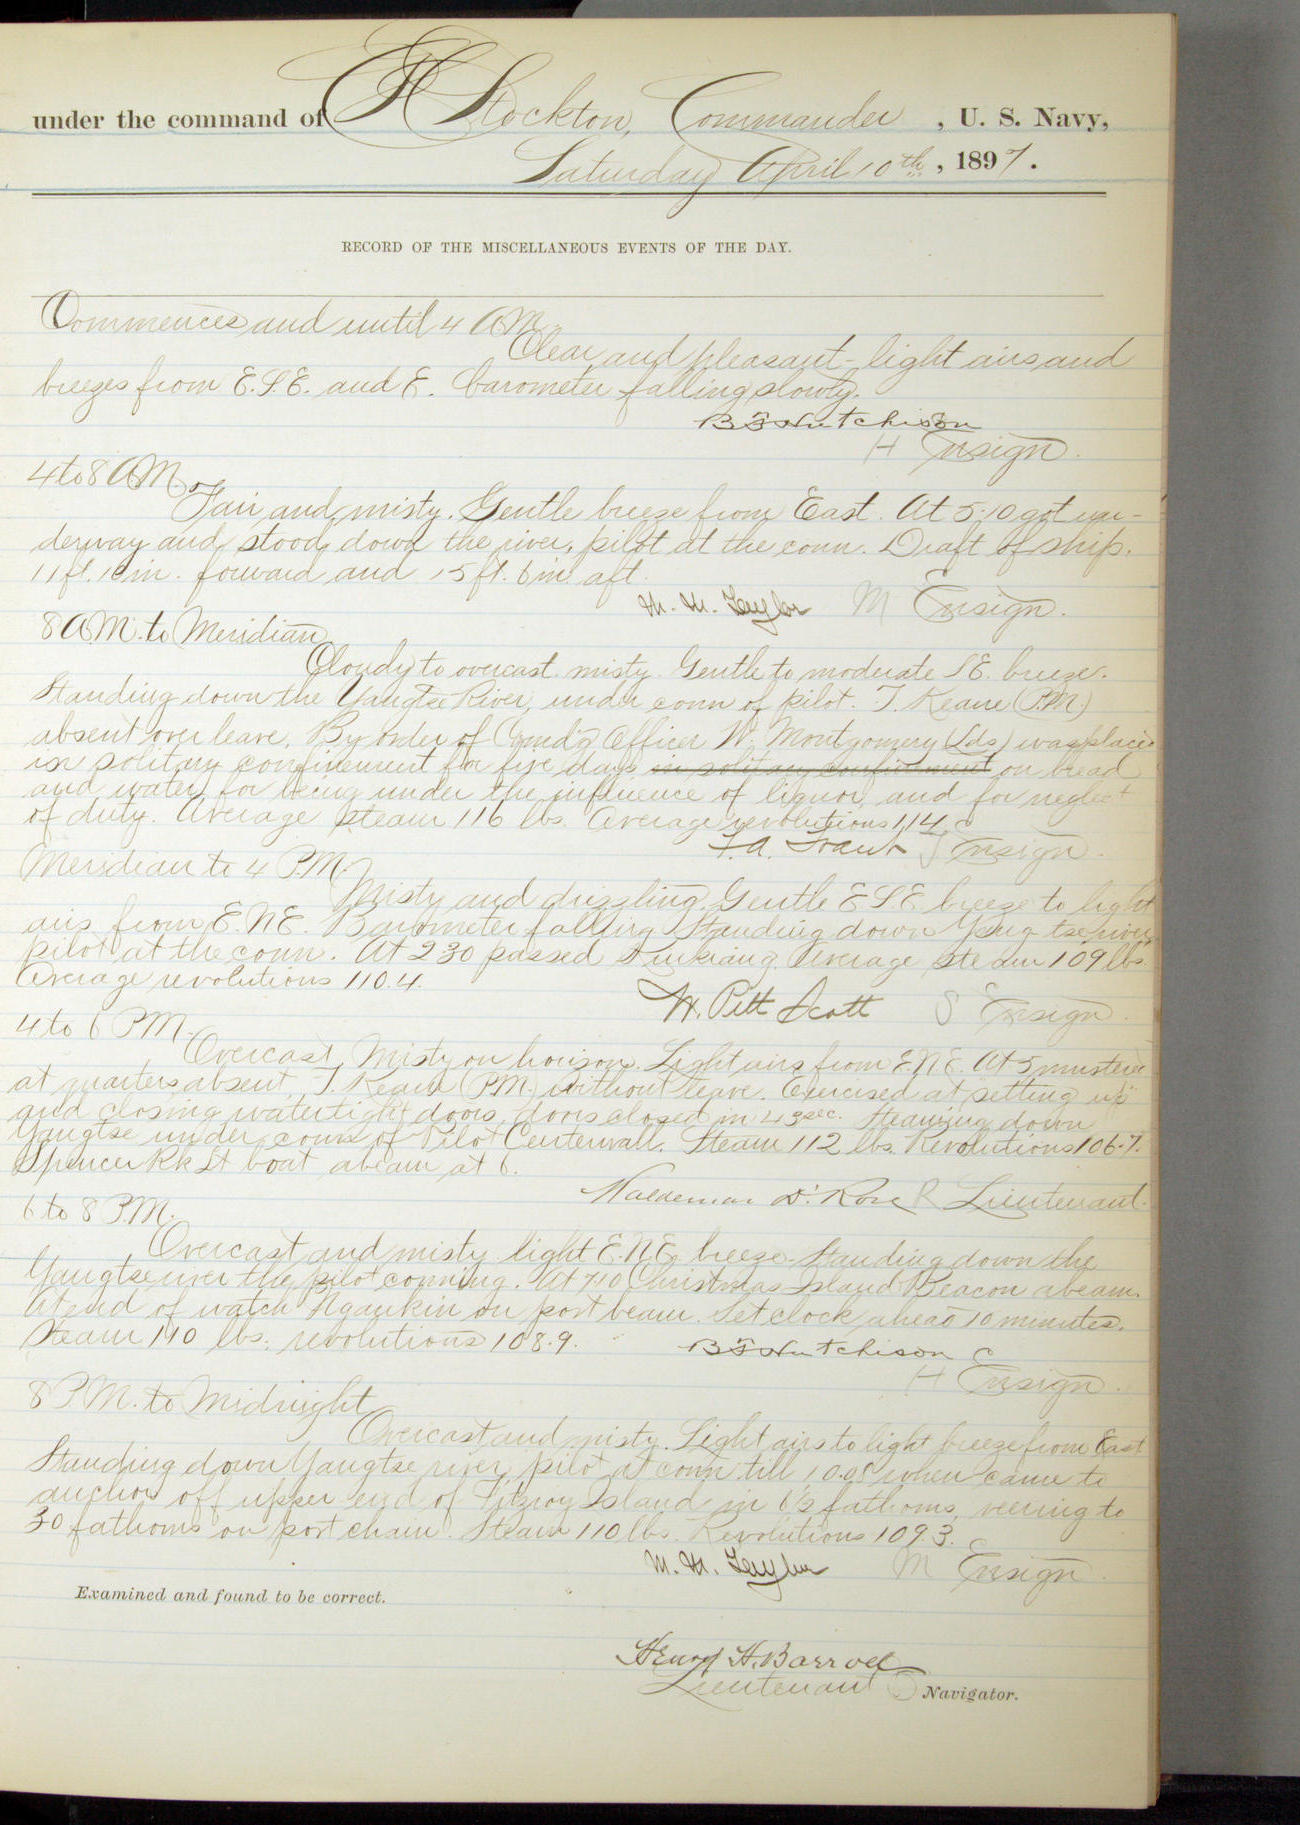 under the command of C H Stockton, Commander, U. S. Navy,
Saturday April 10th, 1897.
RECORD OF THE MISCELLANEOUS EVENTS OF THE DAY.
Commences and until 4 A.M.
Clear and pleasant - light airs and
breezes from E.S.E. and E. barometer falling slowly.
B F Hutchison
H Ensign.
4 to 8 A.M.
Fair and misty. Gentle breeze from East. At 5.10 got un-
derway and stood down the river, pilot at the conn. Draft of ship.
11 ft. in. forward and 15 ft. 6 in aft.
M. M. Taylor M Ensign.
8 A.M. to Meridian
Cloudy to overcast misty. Gentle to moderate S.E. breeze.
Standing down the Yangtse River, under conn of pilot. T. Keane (P.M.)
absent over leave. By order of Comd'g Officer W. Montgomery (Lds) was placed
in solitary confinement for five days in solitary confinement on bread
and water, for being under the influence of liquor, and for neglect
of duty. Average steam 116 lbs. Average revolutions 114.
Ensign.
Meridian to 4 P.M.
Misty and drizzling. Gentle E S E. breeze to light
airs from E.N.E. Barometer falling Standing down Yang tse river,
pilot at the conn. At 2 30 passed Average steam 109 lbs.
Average revolutions 110.4.
W. Pitt Scott S Ensign.
4 to 6 P.M.
Overcast, Misty on horizon. Light airs from E.N.E. At 5 mustered
at quarters absent, T. Keane (P.M.) without leave. Exercised at "setting up"
and closing watertight doors, doors closed in 43 sec. Steaming down
Yangtse under conn of Pilot Centervall. Steam 112 lbs. Revolutions 106.7.
Spencer Rk Lt boat abeam at 6.
Waldemar D. Rose R Lieutenant.
6 to 8 P.M.
Overcast and misty light E.N.E. breeze. Standing down the
Yangtse river the pilot conning. At 7.10 Christmas Island Beacon abeam.
At end of watch Ngankin on port beam. Set clock ahead 10 minutes.
Steam 110 lbs. revolutions 108.9.
B F Hutchison
H Ensign.
8 P.M. to Midnight
Overcast and misty. Light airs to light breeze from East
Standing down Yangtse river, pilot at conn till 10.08 when came to
anchor off upper end of Fitzroy Island in 6½ fathoms, veering to
30 fathoms on port chain. Steam 110 lbs. Revolutions 109.3.
M. M. Taylor M Ensign.
Examined and found to be correct.
Henry H. Barroll
Lieutenant Navigator.